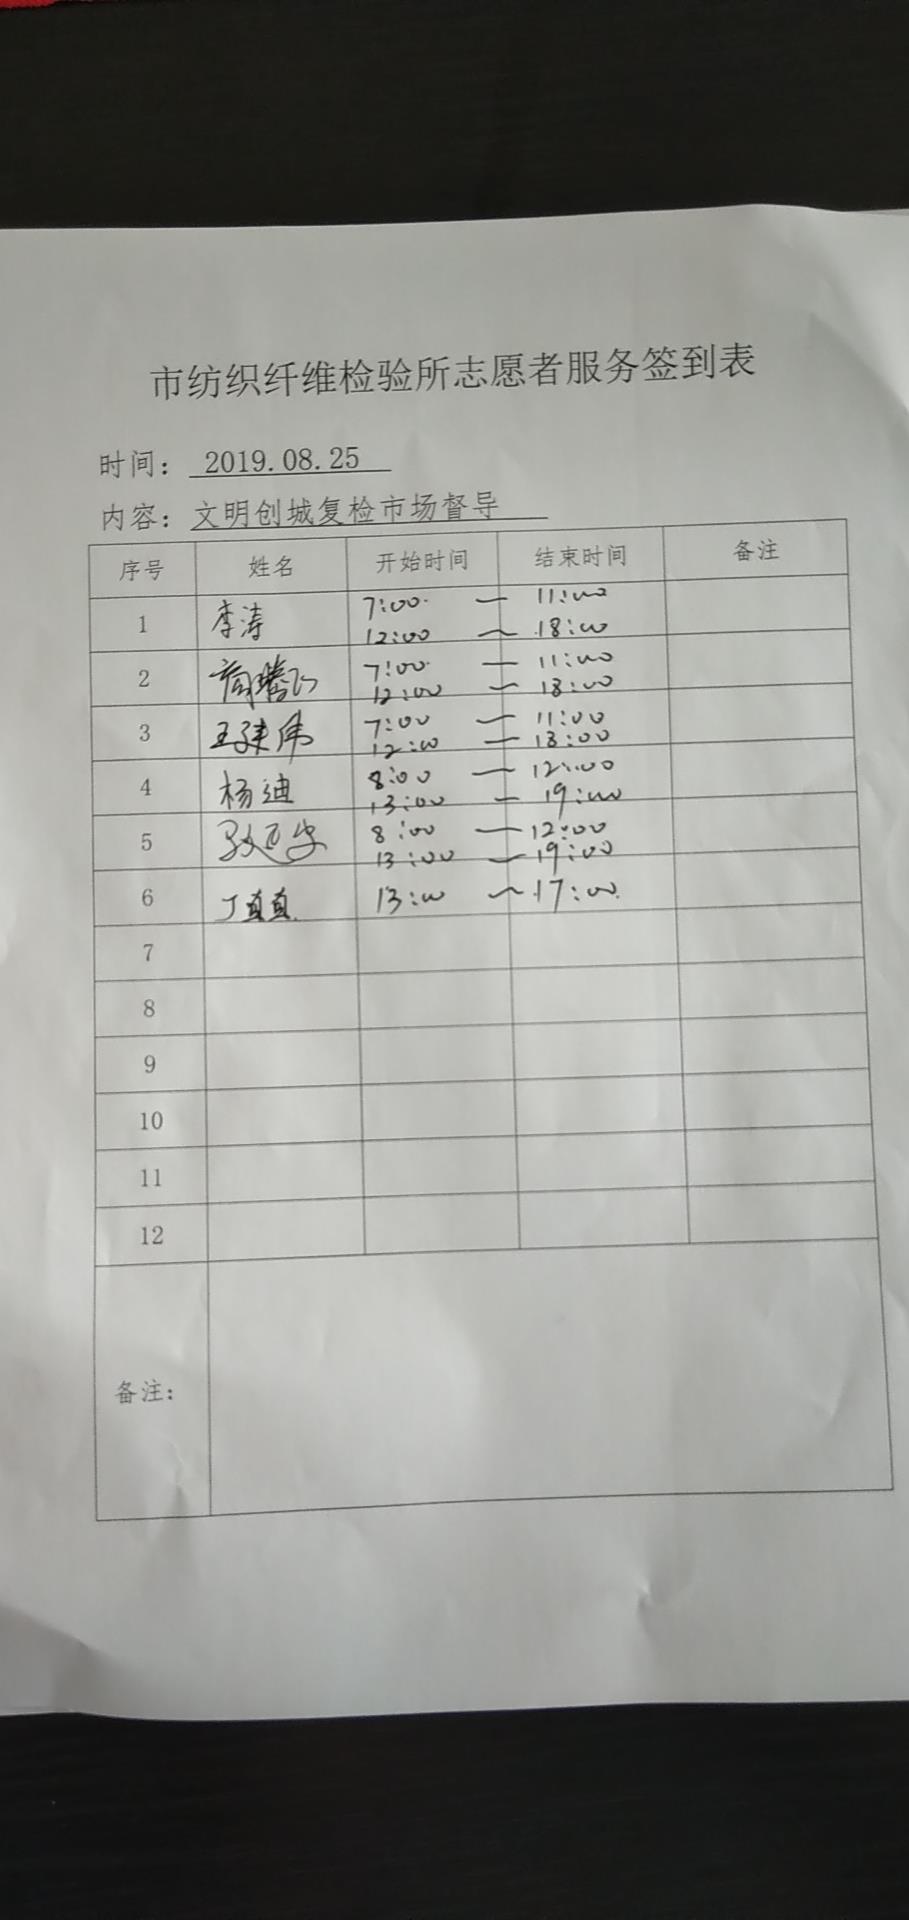 市纺织纤维检验所志愿者服务签到表
时间： 2019.08.25
内容：文明创城复检市场督导
序号 姓名 开始时间 结束时间 备注
1 李涛 7:00 — 11:00
12:00 ~ 18:00
2 7:00 — 11:00
12:00 ~ 18:00
3 王建伟 7:00 ~ 11:00
12:00 — 18:00
4 杨迪 8:00 — 12:00
13:00 — 19:00
5 8:00 — 12:00
13:00 ~ 19:00
6 丁真真 13:00 ~ 17:00
7
8
9
10
11
12
备注：